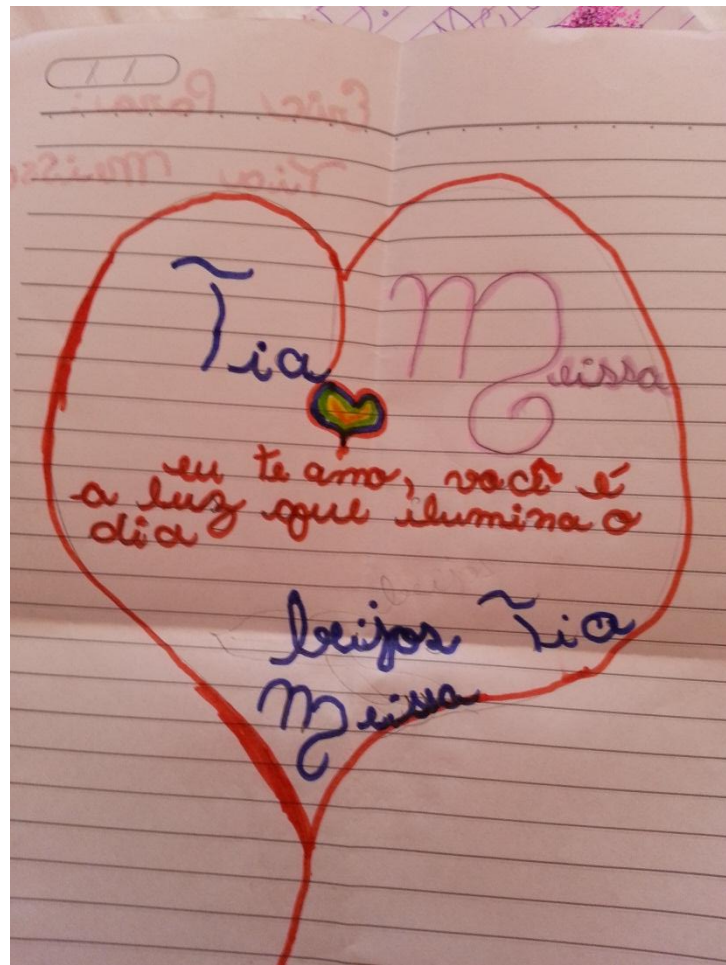 Tia Meissa
eu te amo, você é
a luz que ilumina o
dia
beijos Tia
Meissa